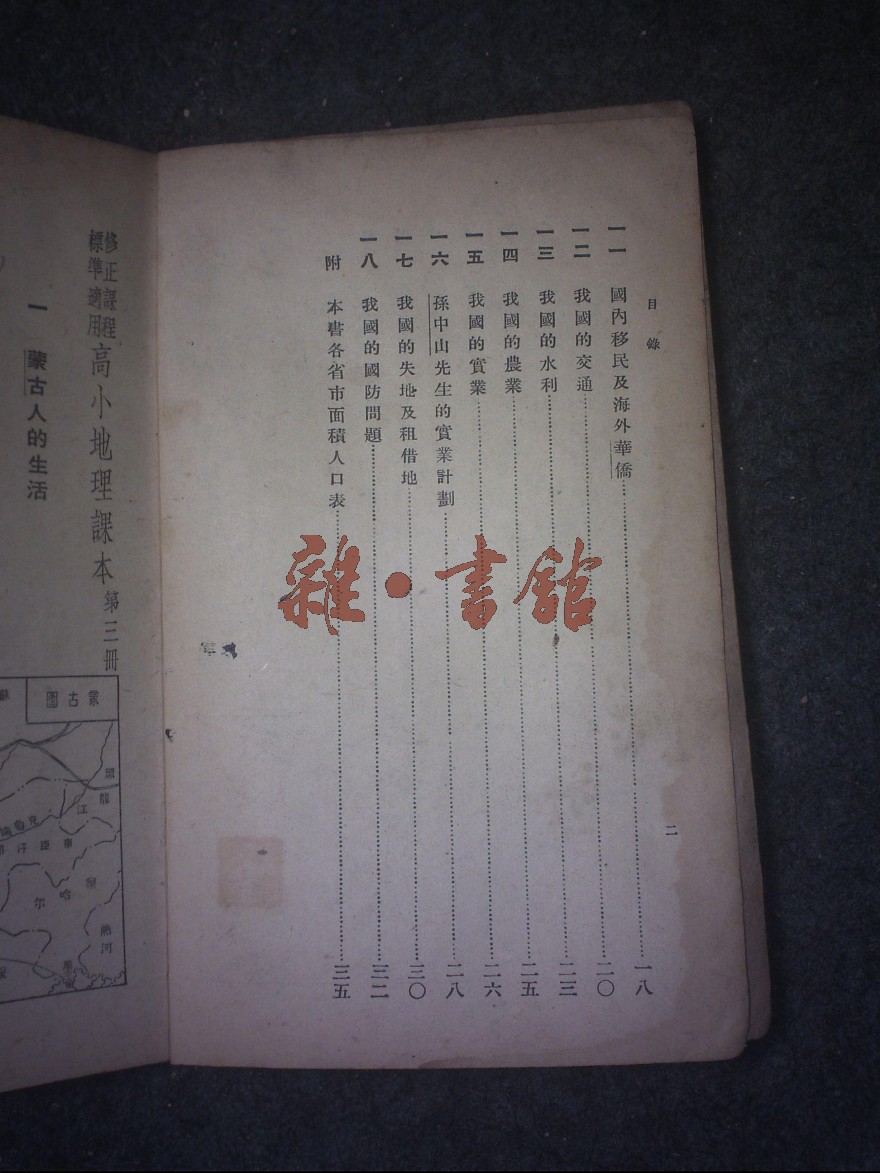 目錄
一一 國內移民及海外華僑……一八
一二 我國的交通……二〇
一三 我國的水利……二三
一四 我國的農業……二五
一五 我國的實業……二六
一六 孫中山先生的實業計劃……二八
一七 我國的失地及租借地……三〇
一八 我國的國防問題……三二
附 本書各省市面積人口表……三五
二
雜·書館
修正課程
標準適用
高小地理課本 第三冊
一 蒙古人的生活
圖古蒙
黑
龍
江
車臣汗
哈
尔
熱河